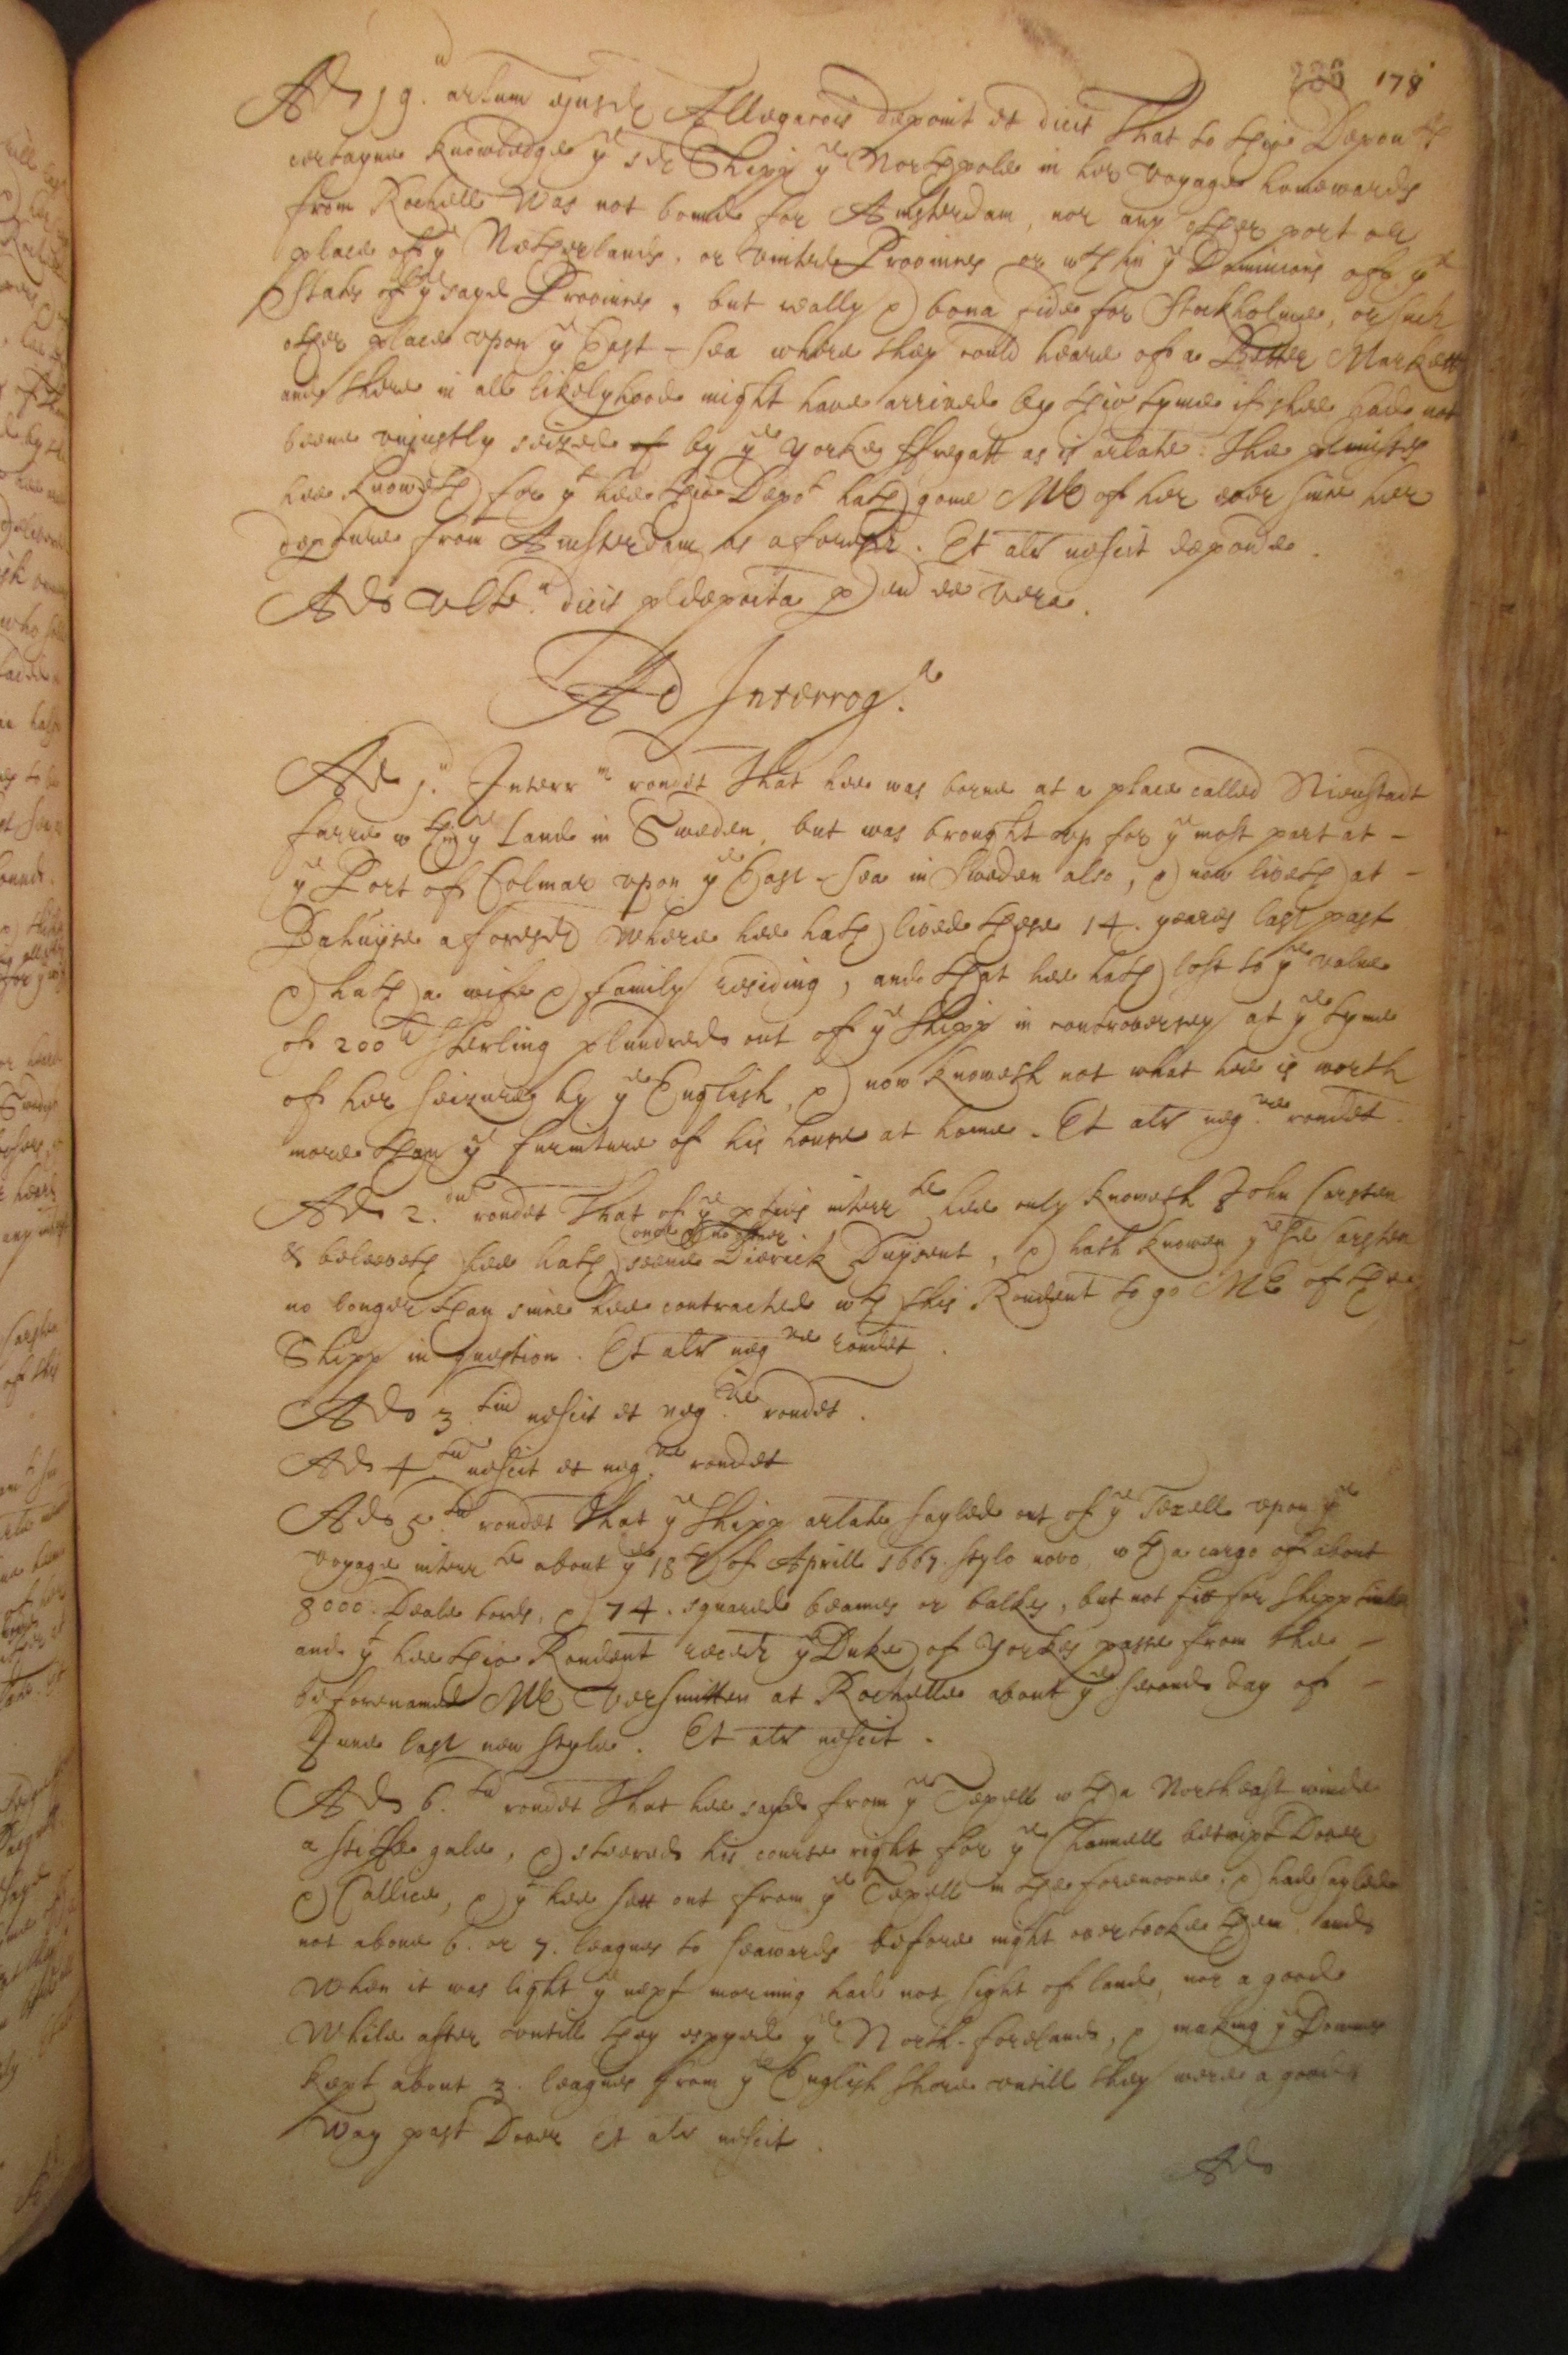 178
Ad 19.u artum ejusd Allegacois deponit et dicit That to this Depon.ts
certayne knowledge ye sd Shipp ye Northpole in her voyage homewards
from Rochell Was not bound for Amsterdam, nor any other port or
place of ye Netherlands, or United Provinces or wthin ye Dominions of ye
States of ye sayd Provinces, but really & bona fide for Stockholme, or such
other place upon ye East-sea where they could heare of a Better Markett
and there in all likelyhood might have arrived by this tyme if shee had not
beene unjustly seized of by ye Yorke ffregatt as is arlate. The p'misses
hee knoweth for yt hee this Depot hath gone Mr of her ever since her
depture from Amsterdam as aforesd. Et alr nescit depondre.
Ad Ult.u dicit p'deposita p eu ee vera.
Ad Interrog.a
Ad 1.u Interr.m rondet That hee was borne at a place called Nieustadt
farre wthin ye Land in Sweden, but was brought up for ye most part at -
ye Port of Colmar upon ye East-Sea in Sweden also, & now liveth at -
Bahuyse aforesd Where hee hath lived these 14. yeares last past
& hath a wife & family residing, and that hee hath lost to ye value
of 200 li Sterling plundred out of ye Shipp in controversey at ye tyme
of her seizure by ye English, & now knoweth not what hee is worth
more than ye furniture of his house at home. Et alr neg.ve rondet.
Ad 2.dum rondet That of ye p'ties interr.te hee only knoweth John Carsten
& beleeveth hee hath seene Dierick Duysent, & hath knowen ye sd Carsten
once & no oftner
no longer than since hee contracted wth this Rondent to go Mr of the
Shipp in question. Et alr neg.ve rondet.
Ad 3.tiu nescit et neg.ve rondet.
Ad 4.tu nescit et neg.ve rondet
Ad 5.tu rondet That ye Shipp arlate sayled out of ye Texell upon ye
voyage interr.te about ye 18th of Aprill 1667. stylo novo, wth a cargo of about
8000. Deale bords, & 74. squared beames or balkes, but not fitt for Shipp timber
and yt hee this Rondent recedd ye Duke of Yorkes passe from the -
beforenamed Mr Versmitten at Rochelle about ye second day of -
June last new style. Et alr nescit.
Ad 6.tu rondet That hee sayled from ye Texell wth a North east winde
a stiffe gale, & steered his course right for ye Channell betwixt Dover
& Callice, & yt hee sett out from ye Texell in the forenoone, & had sayled
not above 6. or 7. leagues to seawards before night overtooke them, and
When it was light ye next morning had not sight of land, nor a good
While after untill they espyed ye North-foreland, & making ye Downes
kept about 3. leagues from ye English shore untill they were a good
Way past Dover Et alr nescit.
Ad